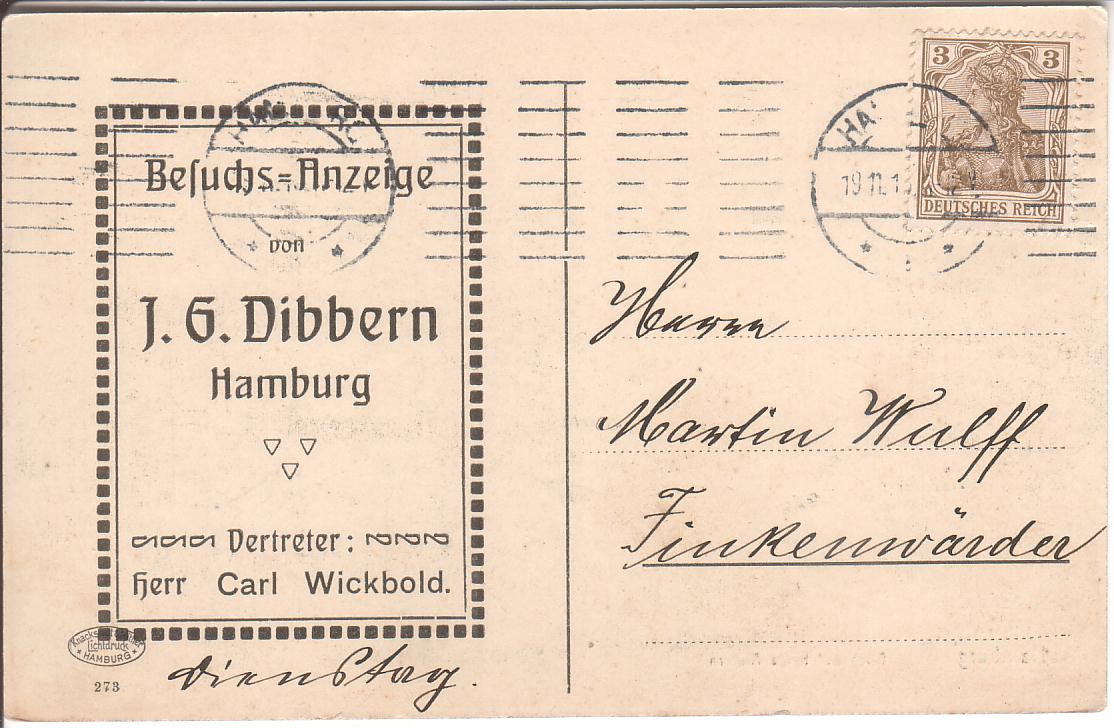 Besuchs=Anzeige
von
J. G. Dibbern
Hamburg
Vertreter:
Herr Carl Wickbold.
Lichtdruck
HAMBURG
273
Dienstag.
3 3
DEUTSCHES REICH
19.11.1
Herrn
Martin Wulff
Finkenwärder